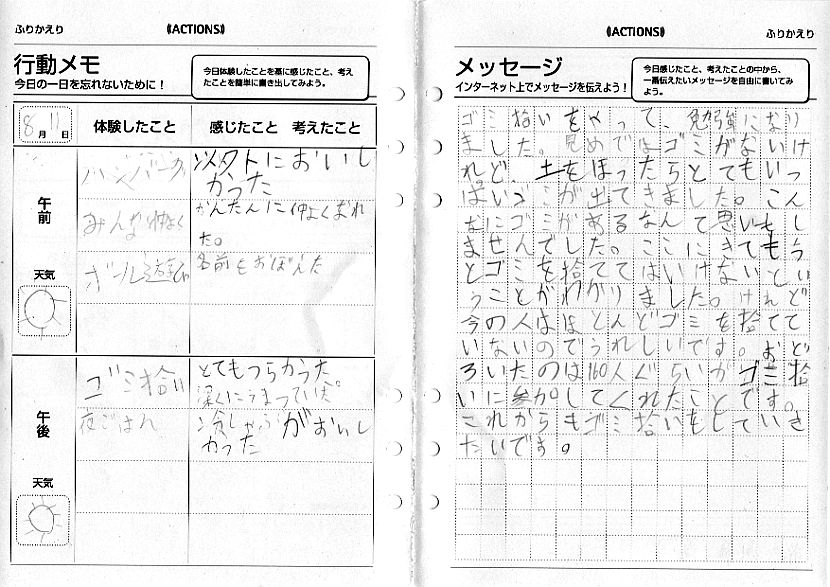 ふりかえり
《ACTIONS》
行動メモ
今日の一日を忘れないために！
今日体験したことを基に感じたこと、考え
たことを簡単に書き出してみよう。
8月11日
体験したこと
感じたこと 考えたこと
午前
天気
ハンバーガ
以外トにおいし
かった
みんな仲よく
かんたんに仲よくなれ
た。
ボール遊び
名前もおぼえた
午後
天気
ゴミ拾い
とてもつらかった
深くにうまっていた。
夜ごはん
冷しゃぶがおいし
かった
《ACTIONS》
ふりかえり
メッセージ
インターネット上でメッセージを伝えよう！
今日感じたこと、考えたことの中から、
一番伝えたいメッセージを自由に書いてみ
よう。
ゴミ拾いをやって、勉強になり
ました。見めではゴミがないけ
れど、土をほったらとてもいっ
ぱいゴミが出てきました。こん
なにゴミがあるなんて思いもし
ませんでした。ここにきてもう
とゴミを捨ててはいけないとい
うことがわかりました。けれど
今の人はほとんどゴミを捨てて
いないのでうれしいです。おど
ろいたのは160人ぐらいがゴミ拾
いに参加してくれたことです。
これからもゴミ拾いをしていき
たいです。